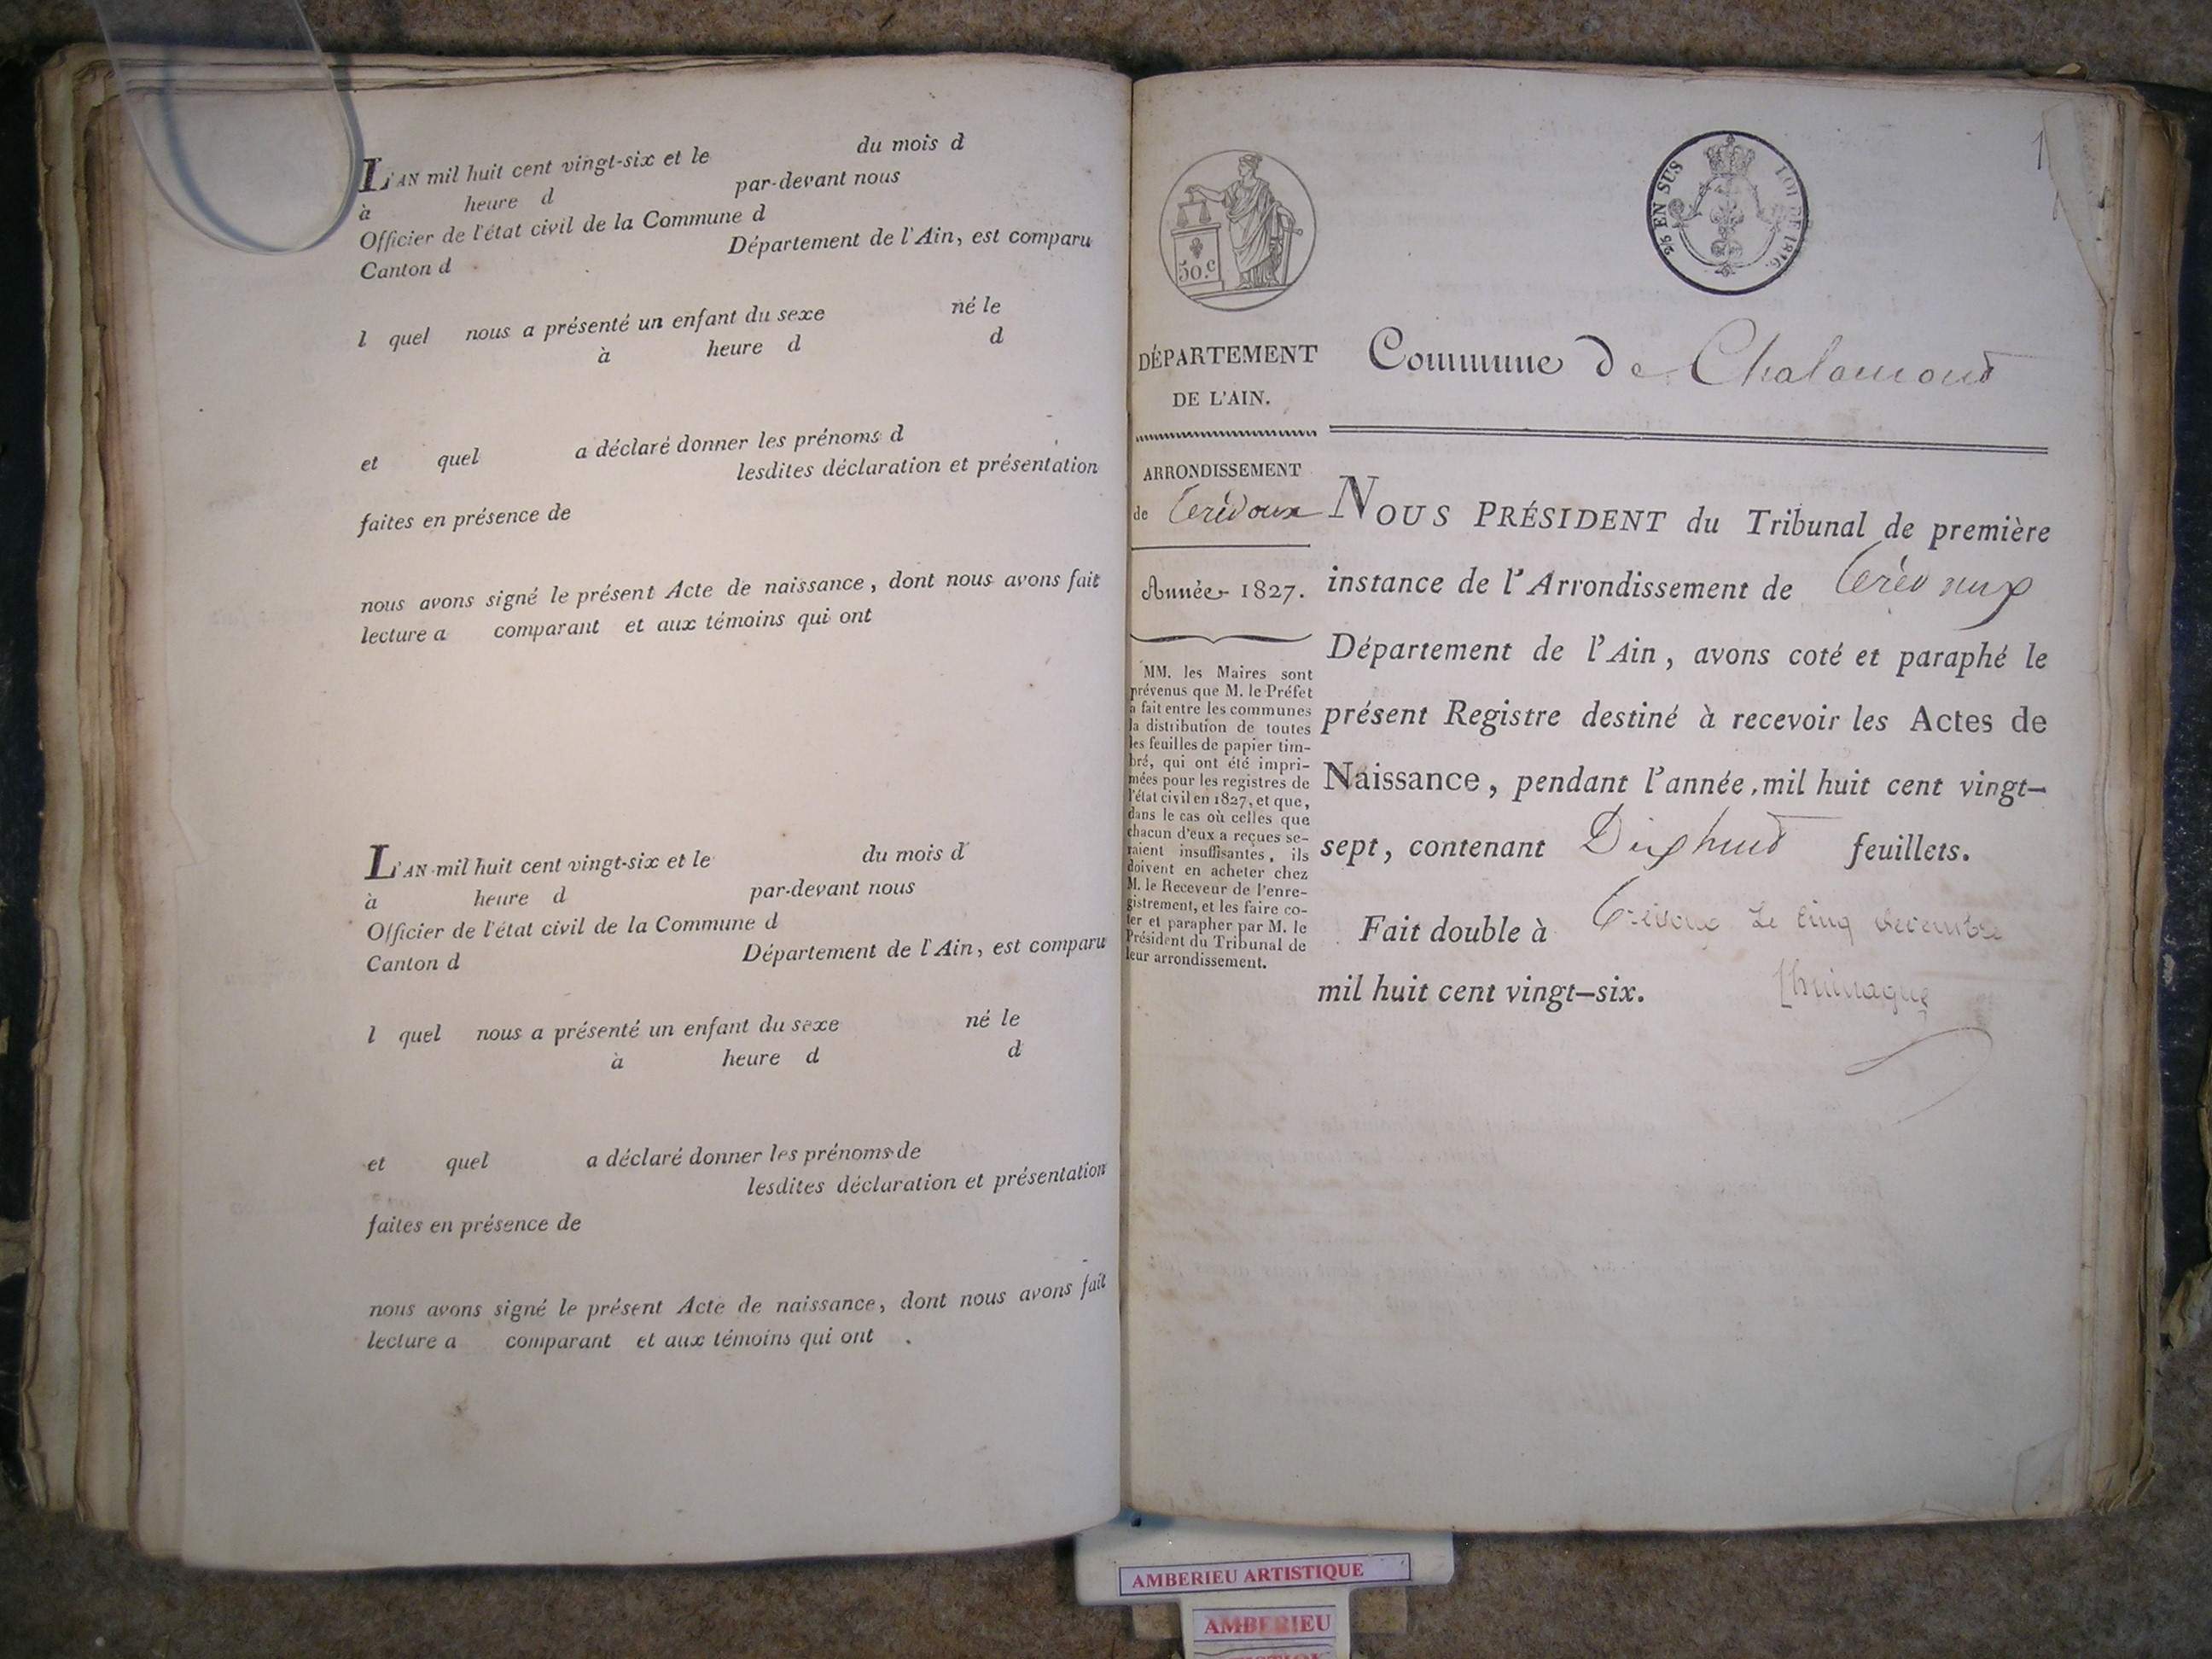 L'AN mil huit cent vingt-six et le du mois d
à heure d par-devant nous
Officier de l'état civil de la Commune d
Canton d Département de l'Ain, est comparu
l quel nous a présenté un enfant du sexe né le
à heure d d
et quel a déclaré donner les prénoms d
lesdites déclaration et présentation
faites en présence de
nous avons signé le présent Acte de naissance, dont nous avons fait
lecture a comparant et aux témoins qui ont
L'AN mil huit cent vingt-six et le du mois d
à heure d par-devant nous
Officier de l'état civil de la Commune d
Canton d Département de l'Ain, est comparu
l quel nous a présenté un enfant du sexe né le
à heure d d
et quel a déclaré donner les prénoms de
lesdites déclaration et présentation
faites en présence de
nous avons signé le présent Acte de naissance, dont nous avons fait
lecture a comparant et aux témoins qui ont .
1
50.c
25 EN SUS LOI DE 1816.
DÉPARTEMENT
DE L'AIN.
ARRONDISSEMENT
de Trévoux
Année 1827.
MM. les Maires sont
prévenus que M. le Préfet
a fait entre les communes
la distribution de toutes
les feuilles de papier tim-
bré, qui ont été impri-
mées pour les registres de
l'état civil en 1827, et que,
dans le cas où celles que
chacun d'eux a reçues se-
raient insuffisantes, ils
doivent en acheter chez
M. le Receveur de l'enre-
gistrement, et les faire co-
ter et parapher par M. le
Président du Tribunal de
leur arrondissement.
Commune de Chalamont
NOUS PRÉSIDENT du Tribunal de première
instance de l'Arrondissement de Trévoux
Département de l'Ain, avons coté et paraphé le
présent Registre destiné à recevoir les Actes de
Naissance, pendant l'année mil huit cent vingt-
sept, contenant Dixhuit feuillets.
Fait double à Trévoux Le cinq decembre
mil huit cent vingt-six.
AMBERIEU ARTISTIQUE
AMBERIEU